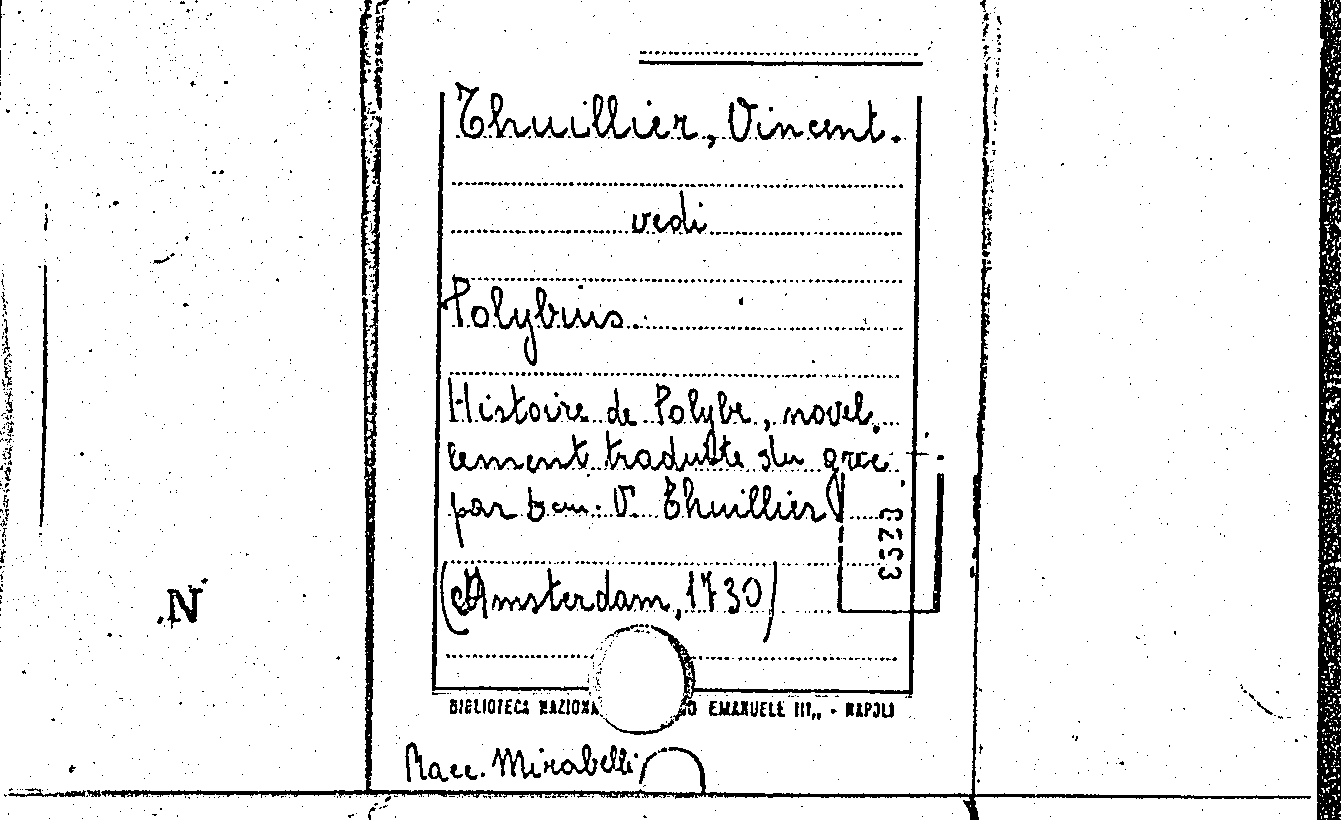 Thuillier, Vincent.
vedi
Polybius.
Histoire de Polybe, novel,
lement traduite du grec
par Dom. V. Thuillier
(Amsterdam, 1730)
BIBLIOTECA NAZIONA O EMANUELE III,, - NAPOLI
Racc. Mirabelli
N